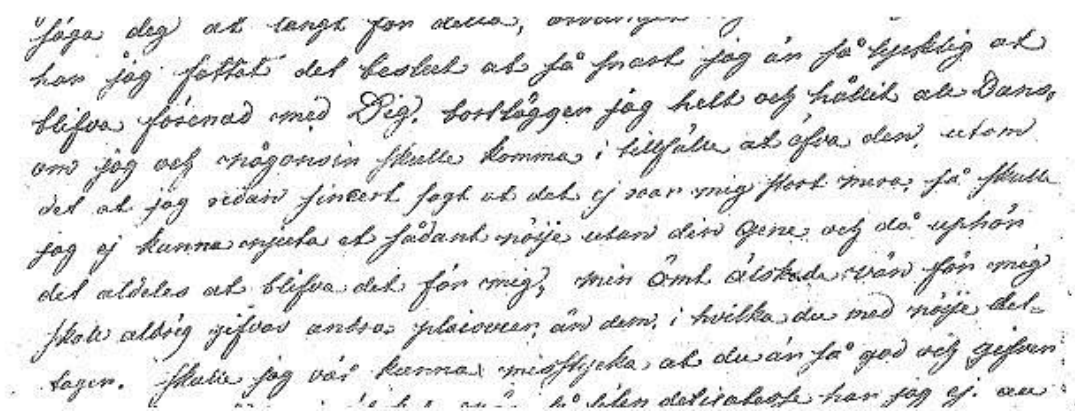 säga deg at langt för detta,
har jag fattat det beslut at så snart jag än så lycklig at
blifva förenad med Dig, bortlägger jag helt och hållit all Dans,
om jag och någonsin skulle komma i tillfälle at öfva den, utom
det at jag redan sincert sagt at det ej var mig stort mera, så skulle
jag ej kunna njuta et sådant nöije utan din gene och då uphör
det aldeles at blifva det för mig, min ömt älskade vän för mig
skall aldrig gifvas andra plaisirer, än dem, i hvilka du med nöije del-
tager. skulle jag väl kunna misstycka at du är så god och gifver
delicatesse har jag ej au